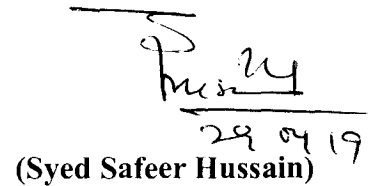 29 04 19
(Syed Safeer Hussain)